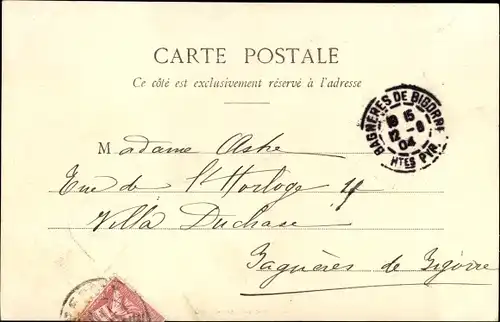 CARTE POSTALE
Ce côté est exclusivement réservé à l'adresse
BAGNÈRES DE BIGORRE
18 15
12 - 9
04
HTES PYR.
Madame Astre
Rue de l'Horloge 4
Villa Duchase
Bagnères de Bigorre